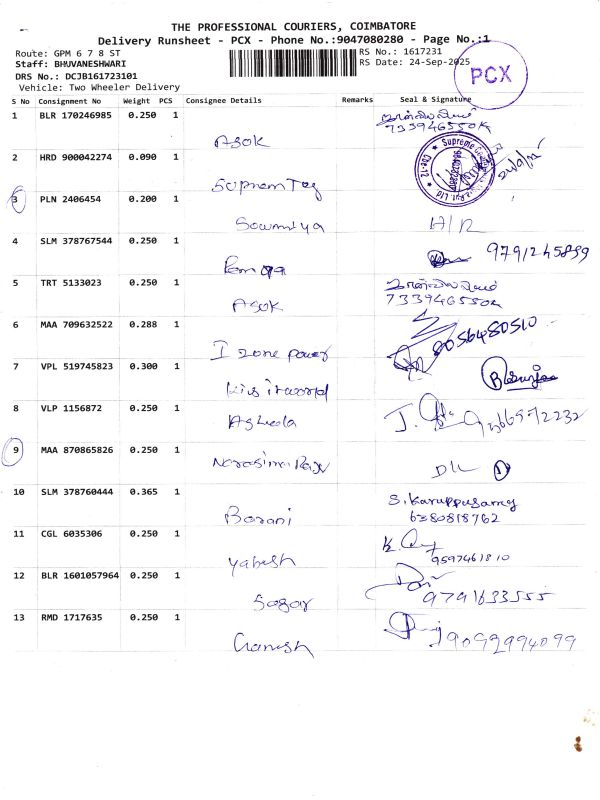 THE PROFESSIONAL COURIERS, COIMBATORE
Delivery Runsheet - PCX - Phone No.:9047080280 - Page No.:1
Route: GPM 6 7 8 ST
RS No.: 1617231
Staff: BHUVANESHWARI
RS Date: 24-Sep-2025
PCX
DRS No.: DCJB161723101
Vehicle: Two Wheeler Delivery
S No Consignment No Weight PCS Consignee Details Remarks Seal & Signature
1 BLR 170246985 0.250 1
ASOK
733946550K
2 HRD 900042274 0.090 1
Suprem Teg
Supreme
Cbe-12
3 PLN 2406454 0.200 1
Sowmiya H/R
4 SLM 378767544 0.250 1
9791245899
5 TRT 5133023 0.250 1
ASOK
733946550K
6 MAA 709632522 0.288 1
I zone power
8056480510
7 VPL 519745823 0.300 1
8 VLP 1156872 0.250 1
J.
9 MAA 870865826 0.250 1
Narasima Raju D/L 1
10 SLM 378760444 0.365 1
Barani
S. Karuppusamy
6380818762
11 CGL 6035306 0.250 1
Yabesh
9597461810
12 BLR 1601057964 0.250 1
Sagar
9791633555
13 RMD 1717635 0.250 1
Ganesh
9092994099